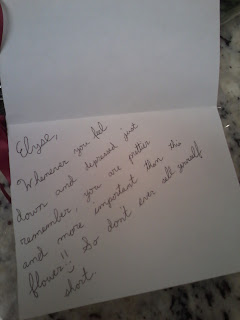 Elyse,
Whenever you feel
down and depressed just
remember, you are prettier
and more important than this
flower!! :) So dont ever sell yourself
short.